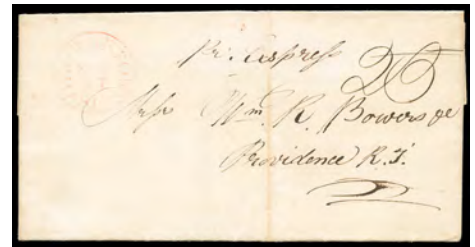 Pr. Express
25
Messr Wm. R. Bowers &c
Providence R. I.